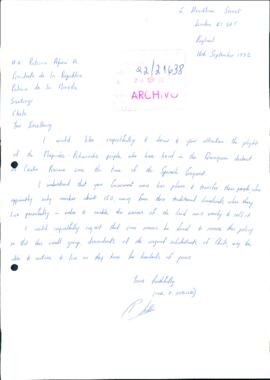 London E1
England
16th September 1992
H.E. Patricio Aylwin A.
Presidente de la Republica
Palacio de la Moneda
Santiago
Chile
22/21638
ARCHIVO
Your Excellency
I would like respectfully to draw to your attention the plight
of the Mapuche Pehuenche people who have lived in the
since the time of the Spanish Conquest.
I understand that your Government now has plans to transfer these people who
apparently only number about 150, away from their traditional homelands where they
live peacefully in order to enable the owners of the land
I would respectfully request that some means be found to reverse this policy
so that this small group, descendants of the original inhabitants of Chile, may be
able to continue to live as they have for hundreds of years.
Yours faithfully